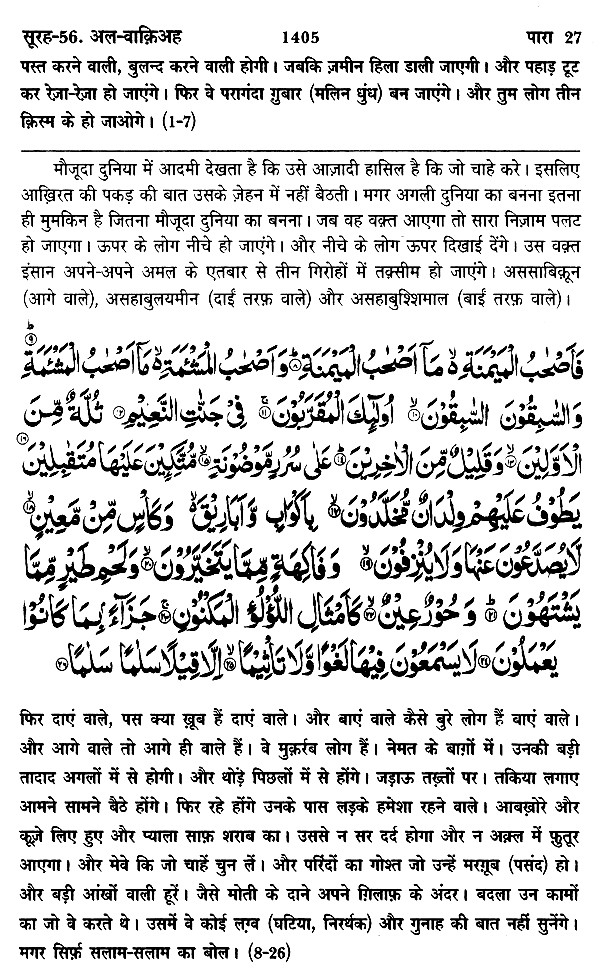 सूरह-56. अल-वाक़िअह 1405 पारा 27
पस्त करने वाली, बुलन्द करने वाली होगी। जबकि ज़मीन हिला डाली जाएगी। और पहाड़ टूट
कर रेज़ा-रेज़ा हो जाएंगे। फिर वे परागंदा ग़ुबार (मलिन धुंध) बन जाएंगे। और तुम लोग तीन
क़िस्म के हो जाओगे। (1-7)
मौजूदा दुनिया में आदमी देखता है कि उसे आज़ादी हासिल है कि जो चाहे करे। इसलिए
आख़िरत की पकड़ की बात उसके ज़ेहन में नहीं बैठती। मगर अगली दुनिया का बनना इतना
ही मुमकिन है जितना मौजूदा दुनिया का बनना। जब वह वक़्त आएगा तो सारा निज़ाम पलट
हो जाएगा। ऊपर के लोग नीचे हो जाएंगे। और नीचे के लोग ऊपर दिखाई देंगे। उस वक़्त
इंसान अपने-अपने अमल के एतबार से तीन गिरोहों में तक़्सीम हो जाएंगे। अससाबिक़ून
(आगे वाले), असहाबुलयमीन (दाईं तरफ़ वाले) और असहाबुश्शिमाल (बाईं तरफ़ वाले)।
فَأَصْحٰبُ الْمَيْمَنَةِ ۙ مَاۤ أَصْحٰبُ الْمَيْمَنَةِ ۸ وَأَصْحٰبُ الْمَشْـَٔمَةِ ۙ مَاۤ أَصْحٰبُ الْمَشْـَٔمَةِ ۹
وَالسّٰبِقُوْنَ السّٰبِقُوْنَ ۱۰ أُولٰٓئِكَ الْمُقَرَّبُوْنَ ۱۱ فِيْ جَنّٰتِ النَّعِيْمِ ۱۲ ثُلَّةٌ مِّنَ
الْأَوَّلِيْنَ ۱۳ وَقَلِيْلٌ مِّنَ الْاٰخِرِيْنَ ۱۴ عَلٰى سُرُرٍ مَّوْضُوْنَةٍ ۱۵ مُّتَّكِـِٕيْنَ عَلَيْهَا مُتَقٰبِلِيْنَ ۱۶
يَطُوْفُ عَلَيْهِمْ وِلْدَانٌ مُّخَلَّدُوْنَ ۱۷ بِأَكْوَابٍ وَّأَبَارِيْقَ ۙ وَكَأْسٍ مِّنْ مَّعِيْنٍ ۱۸
لَّا يُصَدَّعُوْنَ عَنْهَا وَلَا يُنْزِفُوْنَ ۱۹ وَفَاكِهَةٍ مِّمَّا يَتَخَيَّرُوْنَ ۲۰ وَلَحْمِ طَيْرٍ مِّمَّا
يَشْتَهُوْنَ ۲۱ وَحُوْرٌ عِيْنٌ ۲۲ كَأَمْثَالِ اللُّؤْلُؤِ الْمَكْنُوْنِ ۲۳ جَزَآءًۢ بِمَا كَانُوْا
يَعْمَلُوْنَ ۲۴ لَا يَسْمَعُوْنَ فِيْهَا لَغْوًا وَّلَا تَأْثِيْمًا ۲۵ إِلَّا قِيْلًا سَلٰمًا سَلٰمًا ۲۶
फिर दाएं वाले, पस क्या ख़ूब हैं दाएं वाले। और बाएं वाले कैसे बुरे लोग हैं बाएं वाले।
और आगे वाले तो आगे ही वाले हैं। वे मुक़र्रब लोग हैं। नेमत के बाग़ों में। उनकी बड़ी
तादाद अगलों में से होगी। और थोड़े पिछलों में से होंगे। जड़ाऊ तख़्तों पर। तकिया लगाए
आमने सामने बैठे होंगे। फिर रहे होंगे उनके पास लड़के हमेशा रहने वाले। आबख़ोरे और
कूज़े लिए हुए और प्याला साफ़ शराब का। उससे न सर दर्द होगा और न अक़्ल में फ़ुतूर
आएगा। और मेवे कि जो चाहें चुन लें। और परिंदों का गोश्त जो उन्हें मरग़ूब (पसंद) हो।
और बड़ी आंखों वाली हूरें। जैसे मोती के दाने अपने ग़िलाफ़ के अंदर। बदला उन कामों
का जो वे करते थे। उसमें वे कोई लग़्व (घटिया, निरर्थक) और गुनाह की बात नहीं सुनेंगे।
मगर सिर्फ़ सलाम-सलाम का बोल। (8-26)